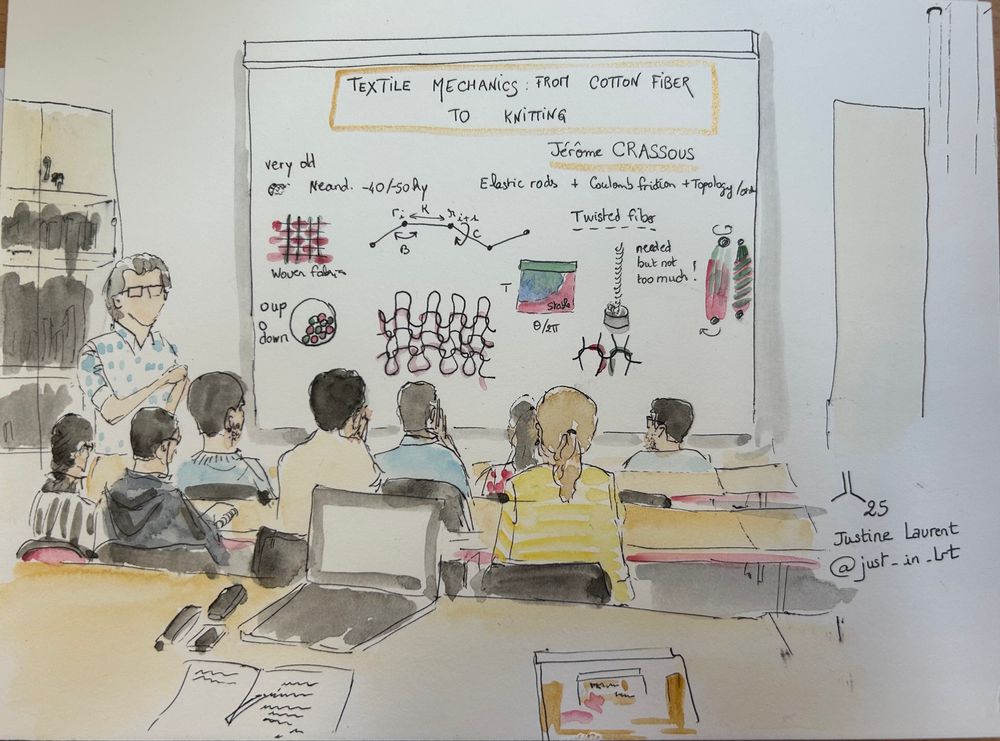 TEXTILE MECHANICS: FROM COTTON FIBER
TO KNITTING
Jérôme CRASSOUS
very old
Neand. -40/-50 ky
Elastic rods + Coulomb friction + Topology /
ri K ri+1
B C
Woven fabric
Twisted fiber
needed
but not
too much!
T
Stable
θ/2π
O up
O down
25
Justine Laurent
@just_in_lrt